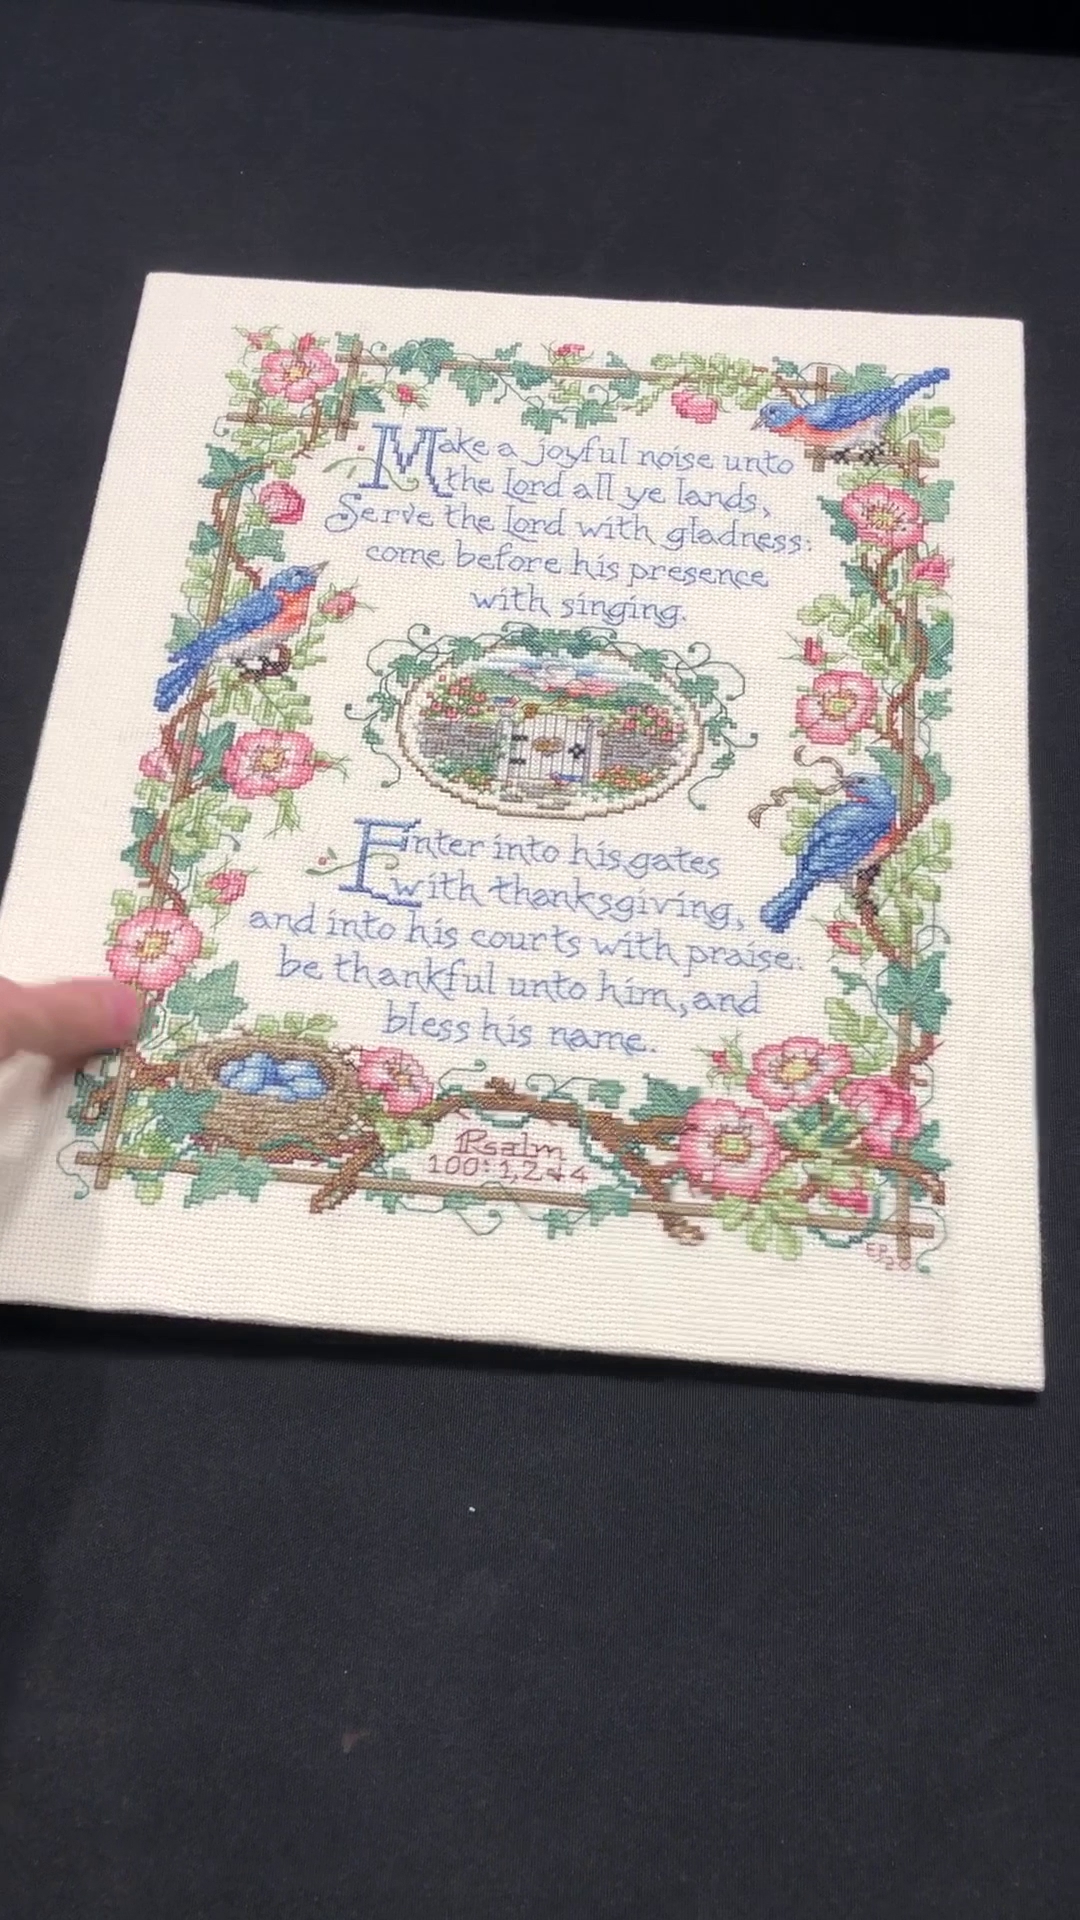 Make a joyful noise unto
the Lord all ye lands,
Serve the Lord with gladness:
come before his presence
with singing.
Enter into his gates
with thanksgiving,
and into his courts with praise:
be thankful unto him, and
bless his name.
Psalm
100:1,2&4